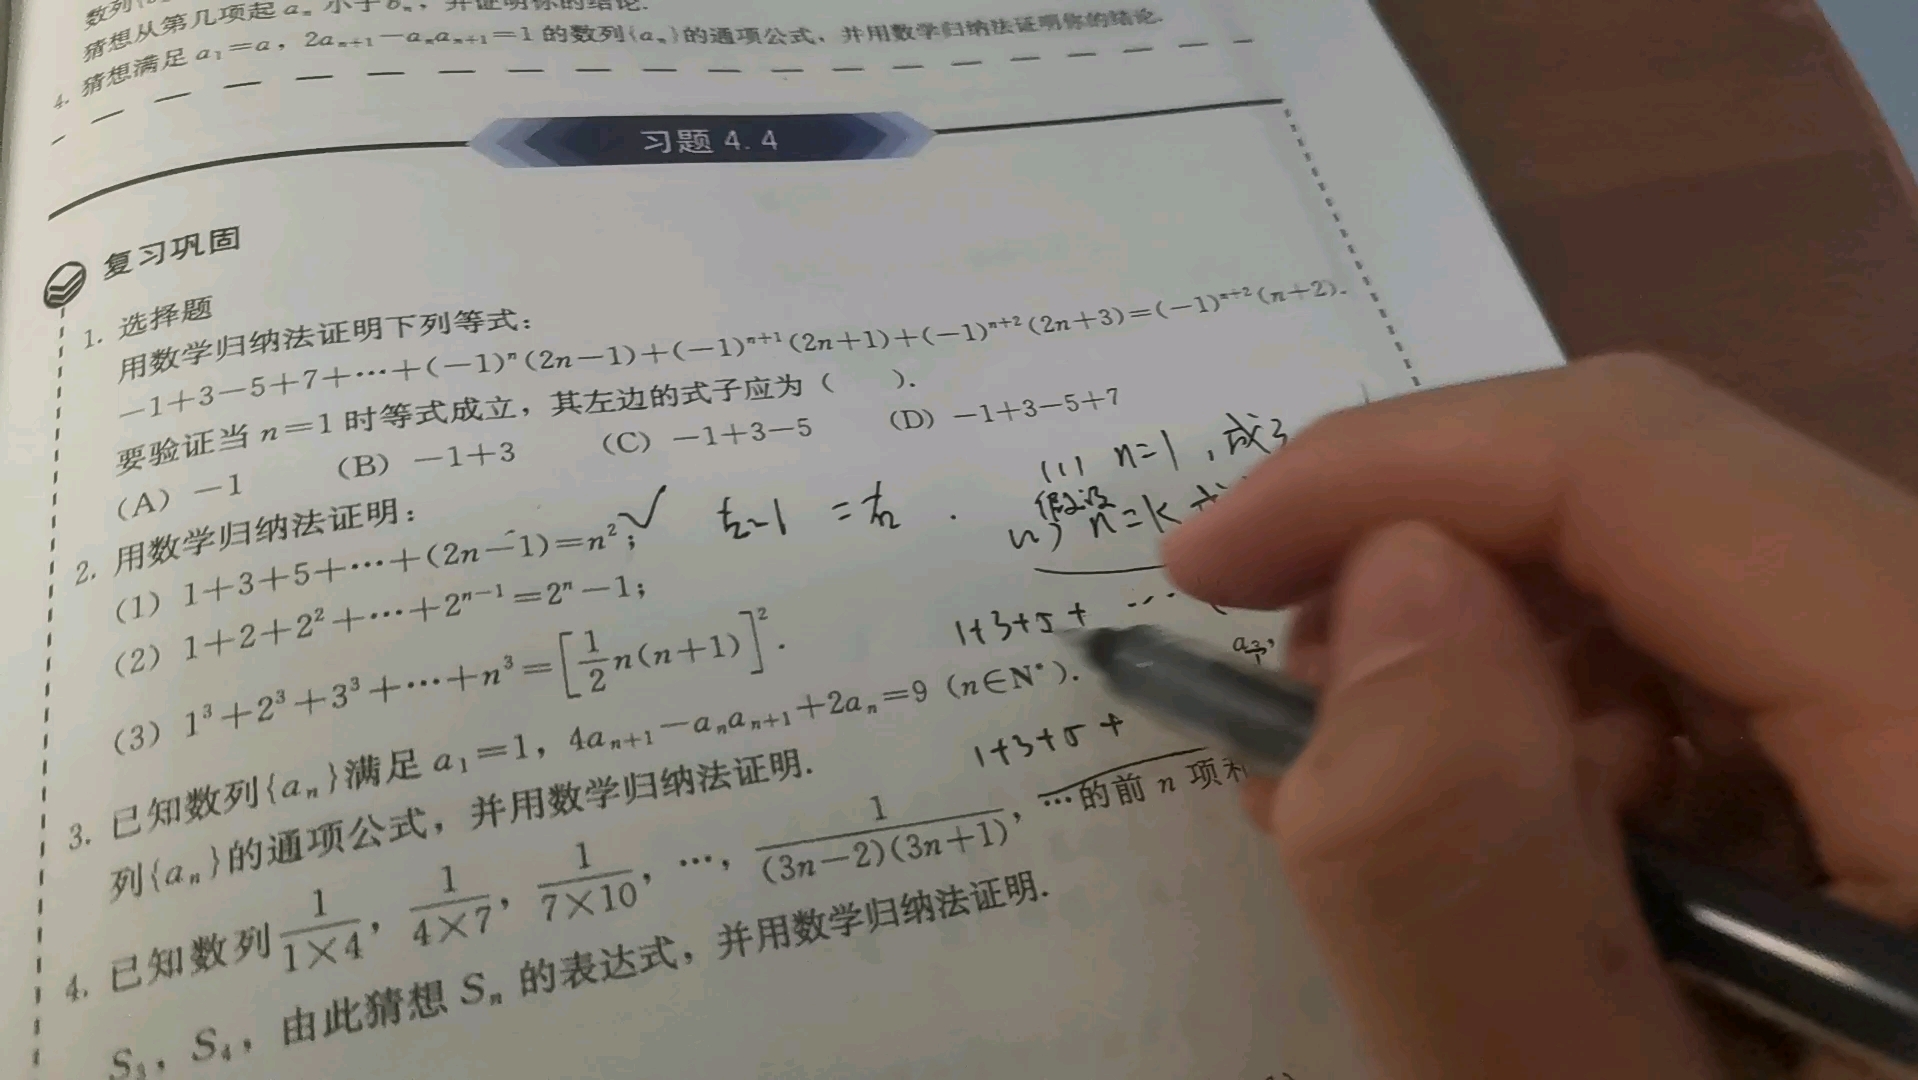 猜想从第几项起 aₙ 小于 bₙ,并证明你的结论.
4. 猜想满足 a₁=a,2aₙ₊₁-aₙaₙ₊₁=1 的数列{aₙ}的通项公式,并用数学归纳法证明你的结论.
习题 4.4
复习巩固
1. 选择题
用数学归纳法证明下列等式:
-1+3-5+7+⋯+(-1)ⁿ(2n-1)+(-1)ⁿ⁺¹(2n+1)+(-1)ⁿ⁺²(2n+3)=(-1)ⁿ⁺²(n+2).
要验证当 n=1 时等式成立,其左边的式子应为( ).
(A) -1 (B) -1+3 (C) -1+3-5 (D) -1+3-5+7
2. 用数学归纳法证明:
(1) 1+3+5+⋯+(2n-1)=n²; ✓
(2) 1+2+2²+⋯+2ⁿ⁻¹=2ⁿ-1;
(3) 1³+2³+3³+⋯+n³=[1/2 n(n+1)]².
(1) n=1,成立
假设
n=k
1+3+5+ ⋯
1+3+5+
3. 已知数列{aₙ}满足 a₁=1,4aₙ₊₁-aₙaₙ₊₁+2aₙ=9 (n∈N*).
列{aₙ}的通项公式,并用数学归纳法证明.
4. 已知数列 1/(1×4), 1/(4×7), 1/(7×10), ⋯, 1/((3n-2)(3n+1)), ⋯的前 n 项
S₃,S₄,由此猜想 Sₙ 的表达式,并用数学归纳法证明.